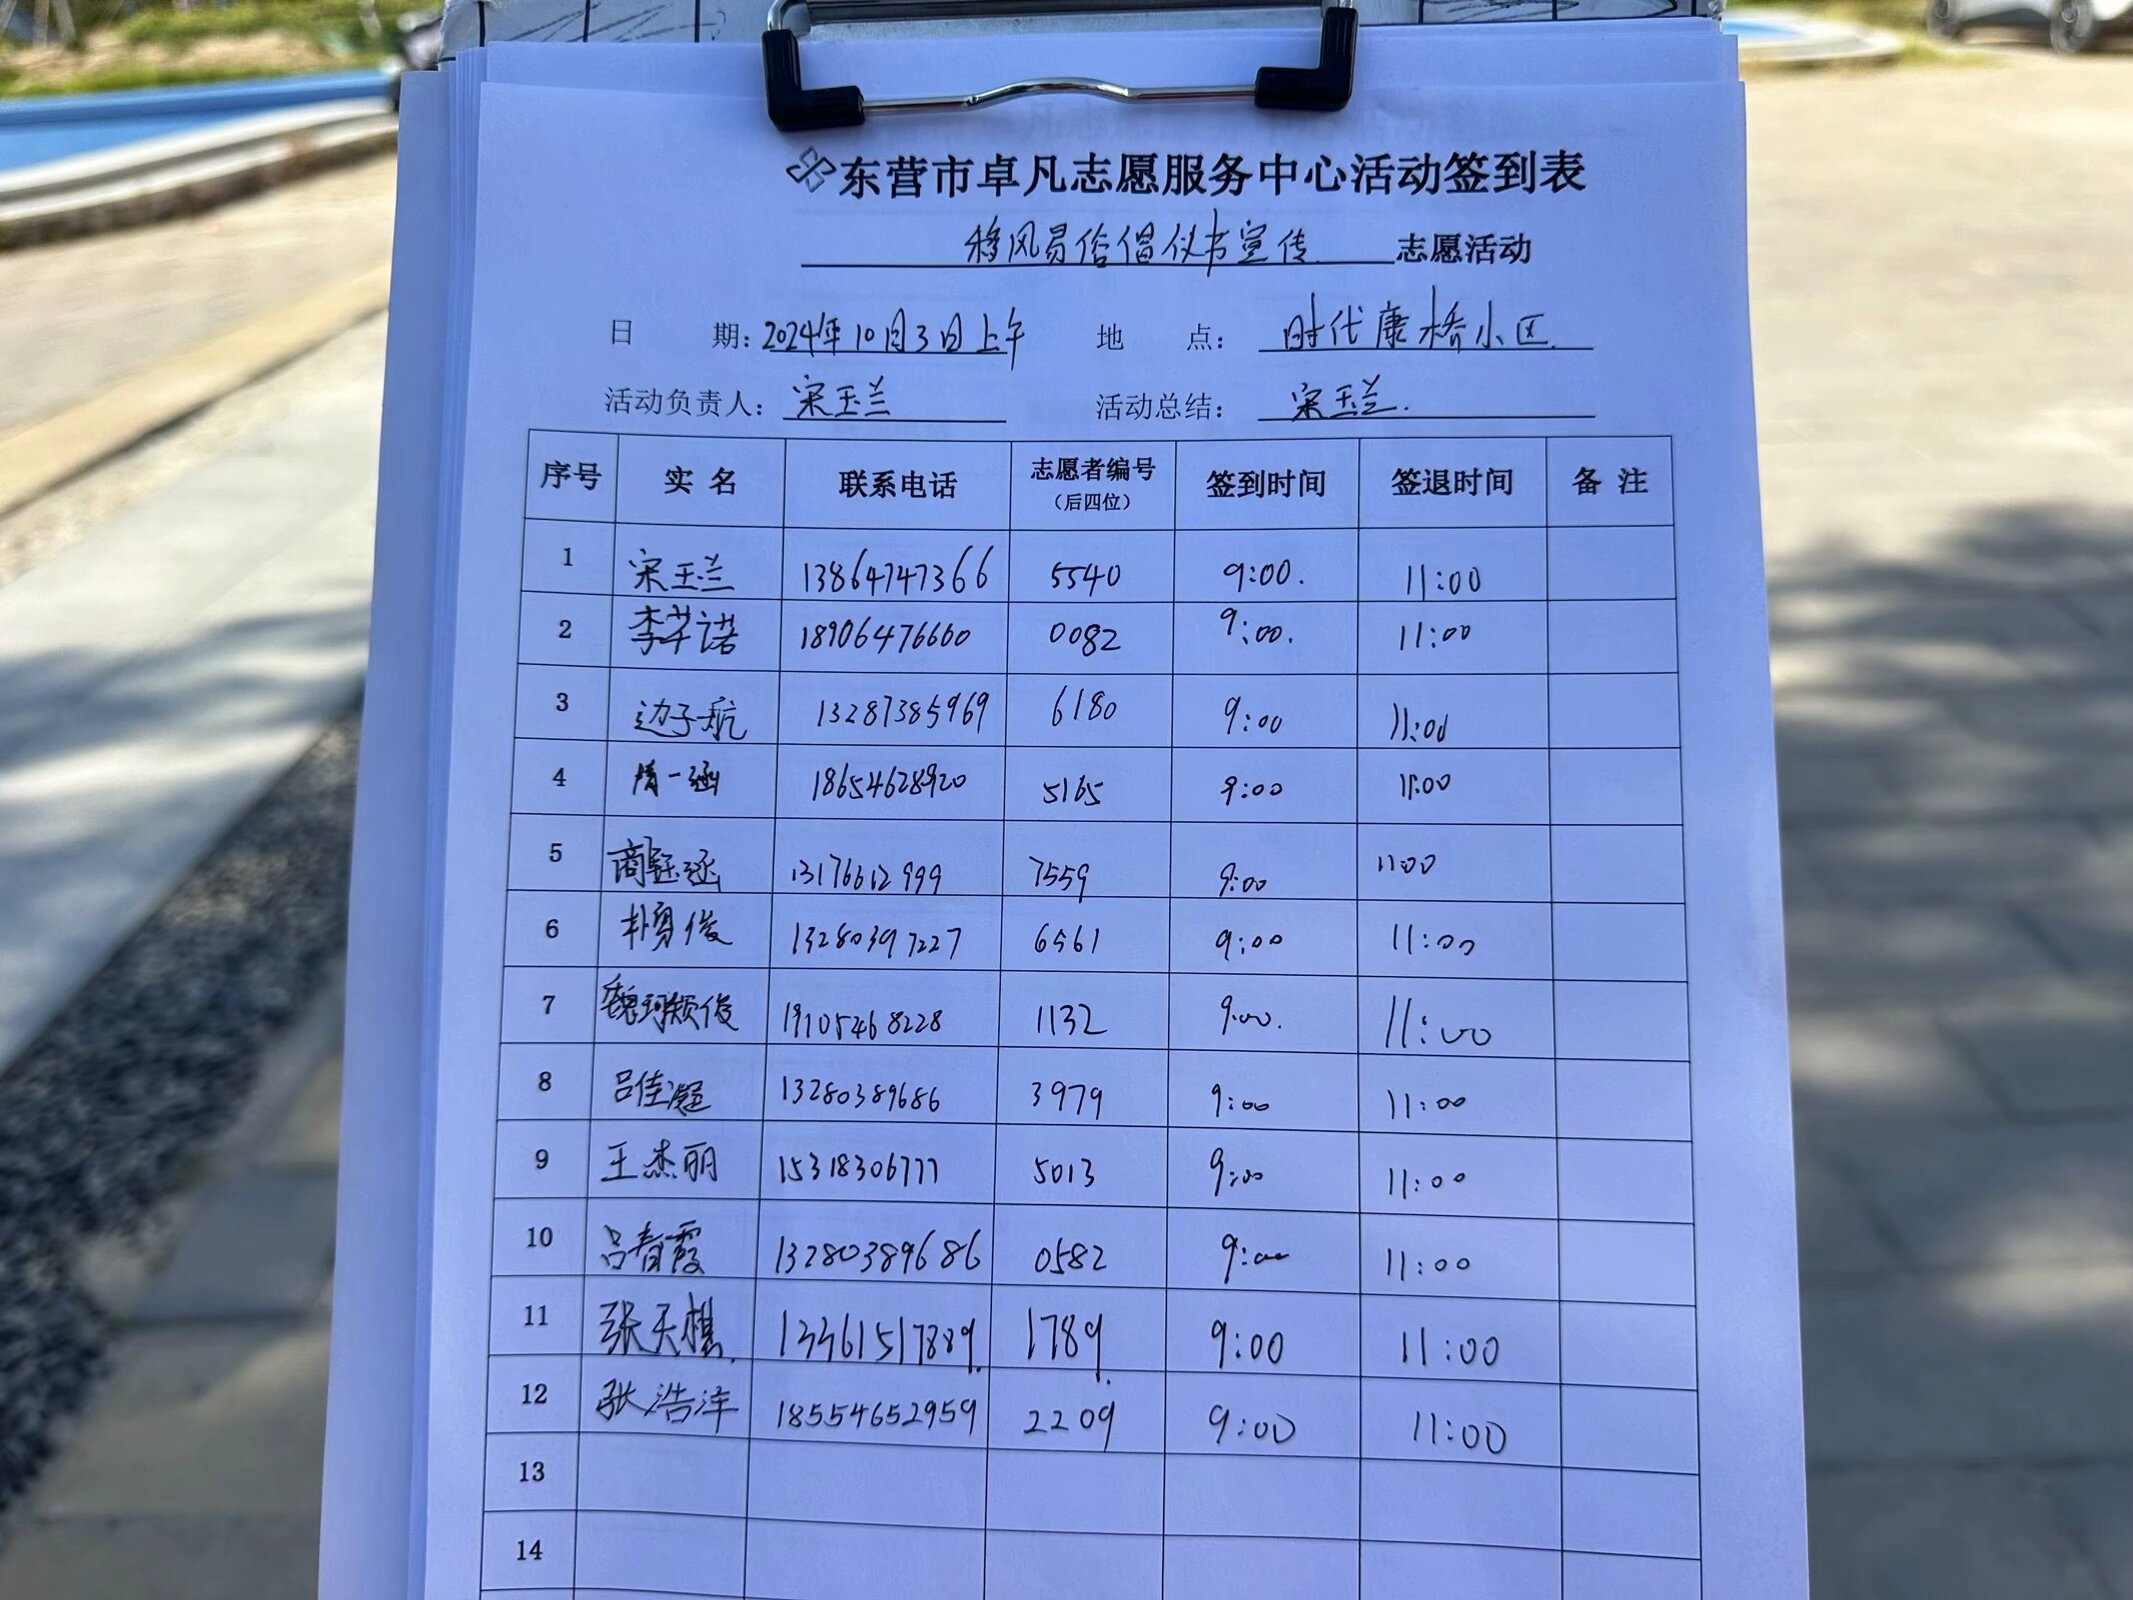 东营市卓凡志愿服务中心活动签到表
移风易俗倡议书宣传 志愿活动
日 期: 2024年10月3日上午 地 点: 时代康桥小区
活动负责人: 宋玉兰 活动总结: 宋玉兰.
序号 实 名 联系电话 志愿者编号 (后四位) 签到时间 签退时间 备 注
1 宋玉兰 13864747366 5540 9:00. 11:00
2 李芊诺 18906476660 0082 9:00. 11:00
3 边子航 13287385969 6180 9:00 11:00
4 隋一涵 18654628920 5165 9:00 11:00
5 商钰涵 13176612999 7559 9:00 11:00
6 俊 13280397227 6561 9:00 11:00
7 魏 俊 19105468228 1132 9:00. 11:00
8 吕佳凝 13280389686 3979 9:00 11:00
9 王杰丽 15318306777 5013 9:00 11:00
10 吕春霞 13280389686 0582 9:00 11:00
11 张天棋. 13361517889. 1789. 9:00 11:00
12 张浩洋 18554652959 2209 9:00 11:00
13
14